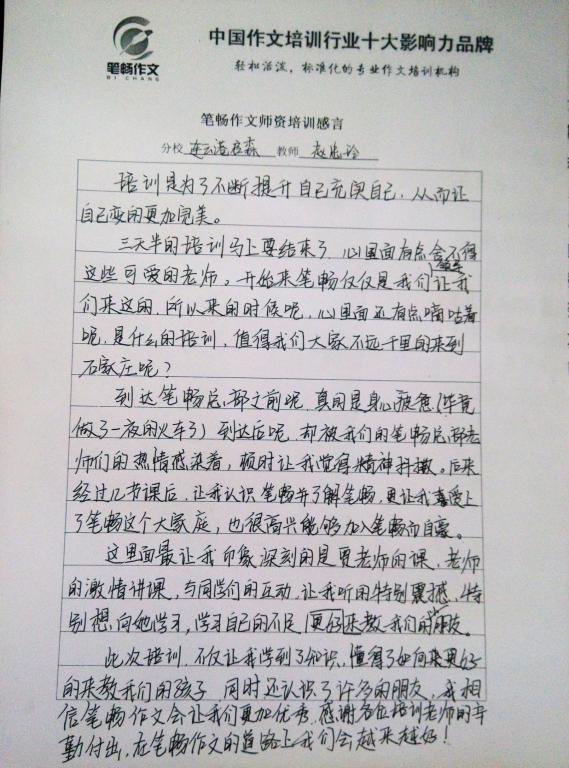 笔畅作文
BI CHANG
中国作文培训行业十大影响力品牌
轻松活泼,标准化的专业作文培训机构
笔畅作文师资培训感言
分校 连云港启森 教师 赵忠玲
培训是为了不断提升自己充实自己,从而让
自己变的更加完美。
三天半的培训马上要结束了 心里面有点舍不得
这些可爱的老师。开始来笔畅仅仅是我们领导让我
们来这的,所以来的时候呢,心里面还有点嘀咕着
呢,是什么的培训,值得我们大家不远千里的来到
石家庄呢?
到达笔畅总部之前呢,真的是身心疲惫(毕竟
做了一夜的火车了)到达后呢,却被我们的笔畅总部老
师们的热情感染着,顿时让我觉得精神抖擞。后来
经过几节课后,让我认识笔畅并了解笔畅,更让我喜爱上
了笔畅这个大家庭,也很高兴能够加入笔畅而自豪。
这里面最让我印象深刻的是夏老师的课,老师
的激情讲课,与同学们的互动,让我听的特别震撼,特
别想向她学习,学习自己的不足 更好来教我们的小朋友。
此次培训,不仅让我学到了知识,懂得了如何来更好
的来教我们的孩子 同时还认识了许多的朋友,我相
信笔畅作文会让我们更加优秀,感谢各位培训老师的辛
勤付出,在笔畅作文的道路上我们会越来越好!